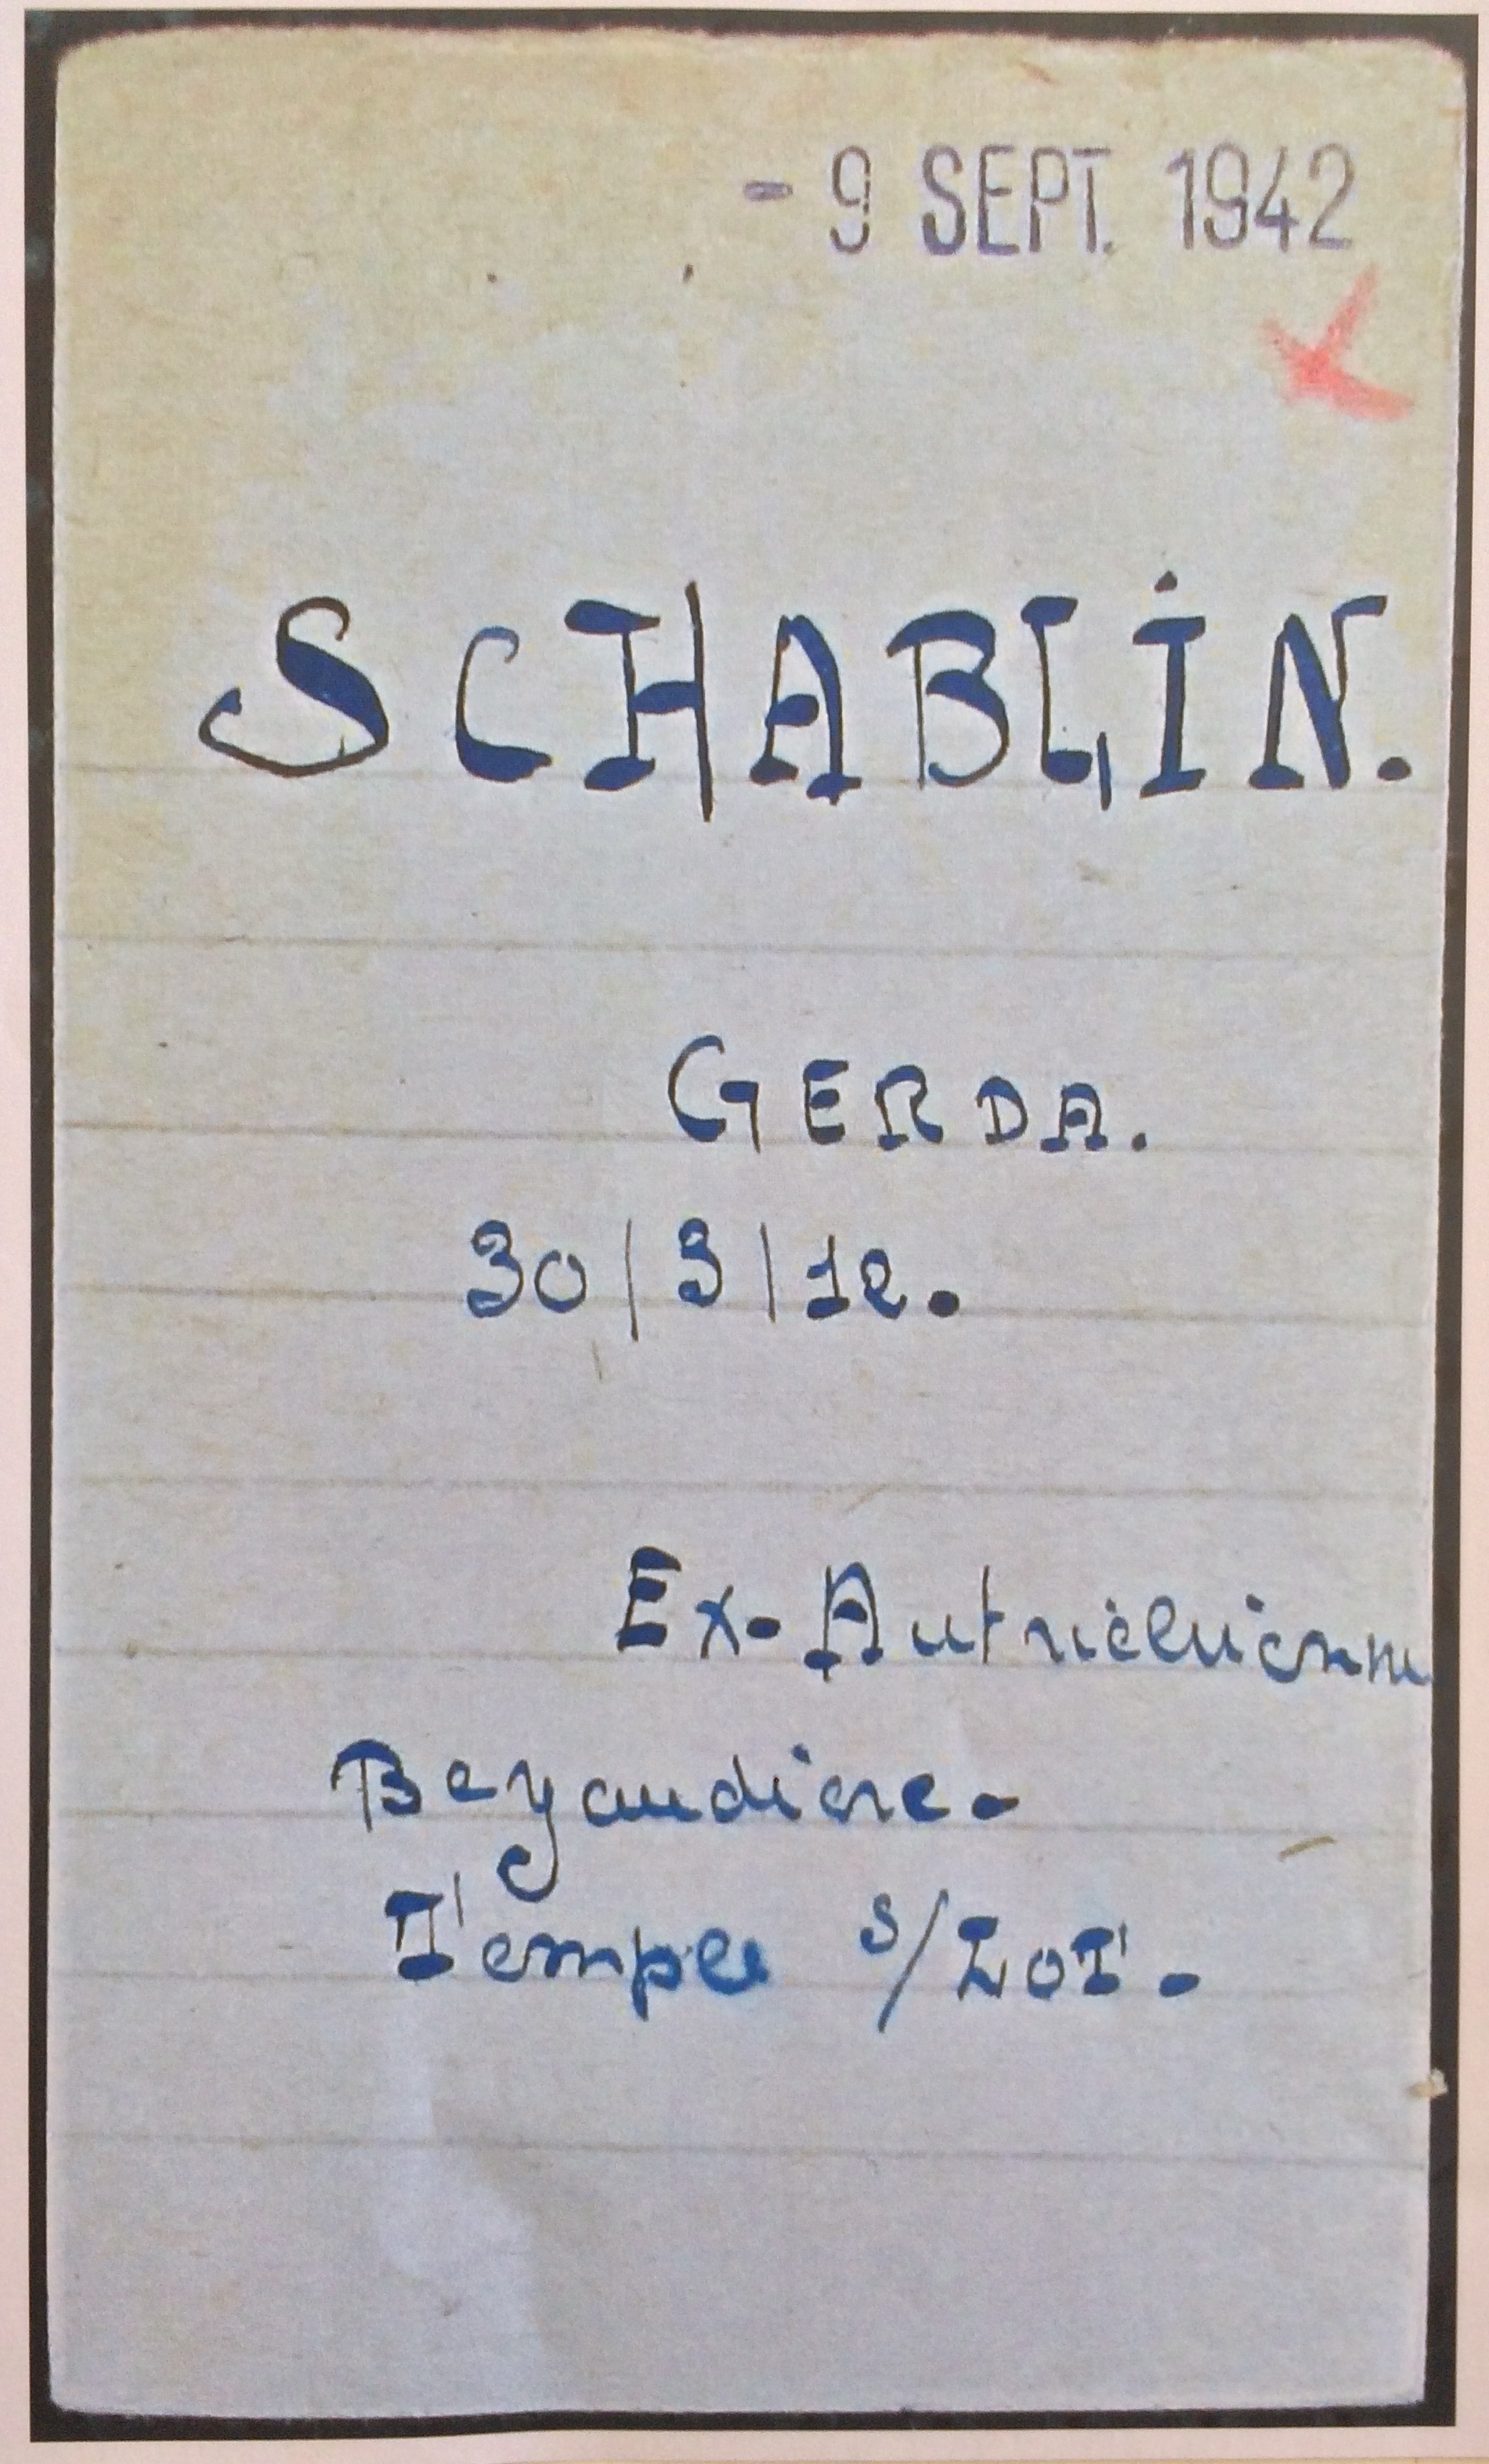 - 9 SEPT. 1942
SCHABLIN.
GERDA.
30/3/12.
Ex-Autrichienne
Begaudiere-
Temple s/Lot-